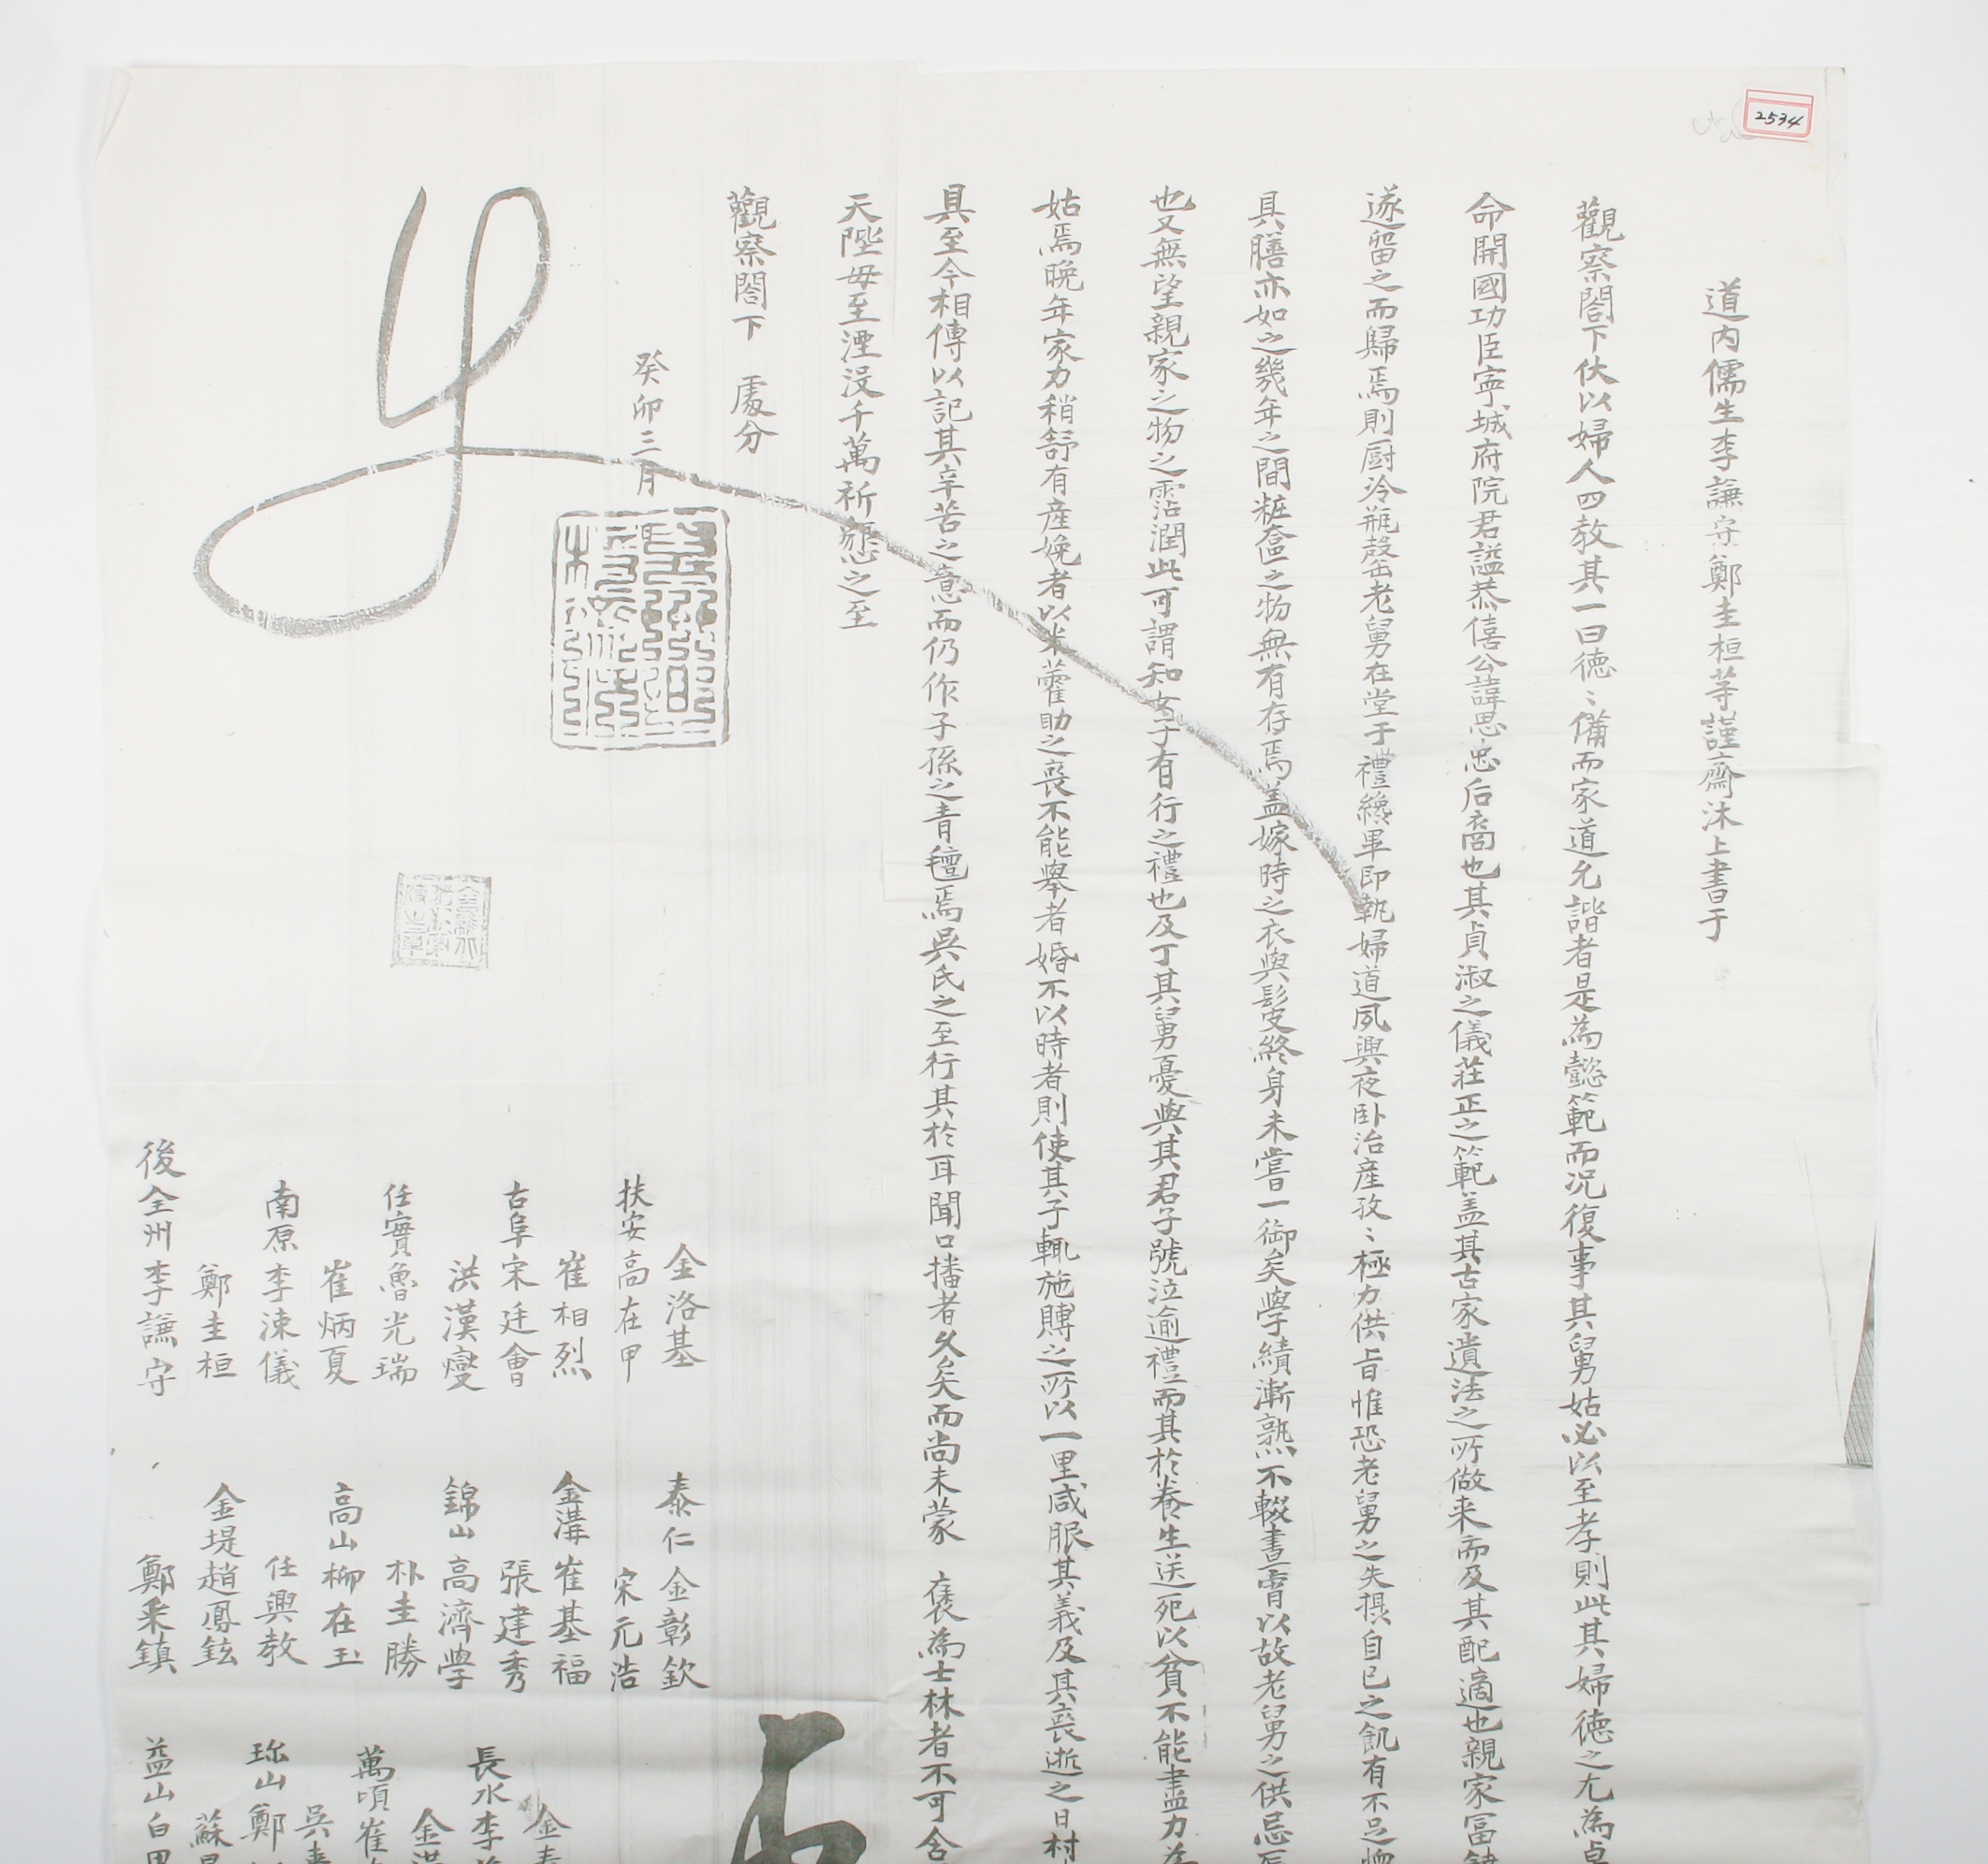 2534
道内儒生李謙守鄭圭桓等謹齋沐上書于
觀察閤下伏以婦人四教其一曰徳〻備而家道允諧者是為懿範而况復事其舅姑必以至孝則此其婦徳之尤為卓
命開國功臣寧城府院君謚恭僖公諱思忠后裔也其貞淑之儀莊正之範盖其古家遺法之所做来而及其配適也親家富
遂留之而歸焉則厨冷瓶罄老舅在堂于禮纔畢即執婦道夙興夜卧治産孜〻極力供旨惟恐老舅之失攝自已之飢有不足恤
具膳亦如之幾年之間粧奩之物無有存焉盖嫁時之衣與髢终身未嘗一御矣學績漸熟不輟晝宵以故老舅之供忌辰
也又無望親家之物之霑潤此可謂知女子有行之禮也及丁其舅憂與其君子號泣逾禮而其於養生送死以貧不能盡力為
姑焉晩年家力稍舒有産娩者以米藿助之喪不能擧者婚不以時者則使其子輒施賻之所以一里咸服其義及其喪逝之日村
具至今相傳以記其辛苦之意而仍作子孫之青氊焉吳氏之至行其於耳聞口播者久矣而尚未蒙 褒為士林者不可含
天陛毋至湮没千萬祈懇之至
觀察閤下 處分
癸卯三月
金洛基 泰仁金彰欽
扶安高在甲 宋元浩
崔相烈 金溝崔基福
古阜宋廷會 張建秀
洪漢燮 錦山高濟學
任實魯光瑞 朴圭勝
崔炳夏 高山柳在玉
南原李涑儀 任興教
鄭圭桓 金堤趙鳳鉉
後全州李謙守 鄭采鎮
金春
長水李
金洪
萬頃崔
吳
珎山鄭
蘇
益山白